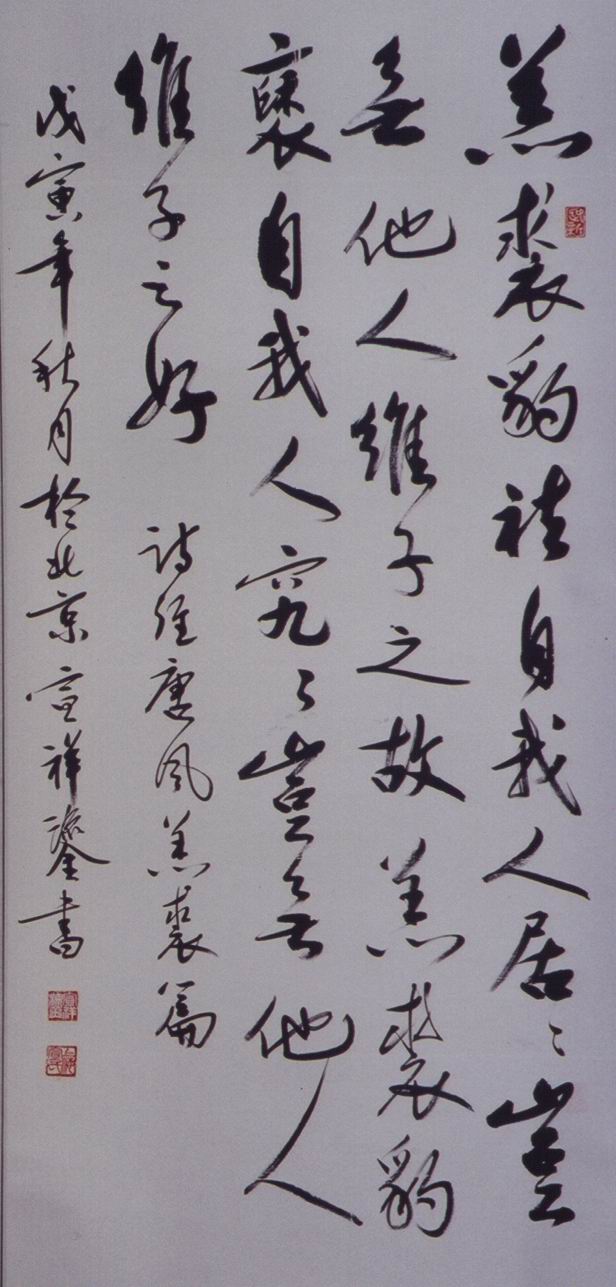 羔裘豹袪自我人居〻豈
無他人維子之故羔裘豹
褎自我人究〻豈無他人
維子之好 詩經唐風羔裘篇
戊寅年秋月於北京宣祥鎏書